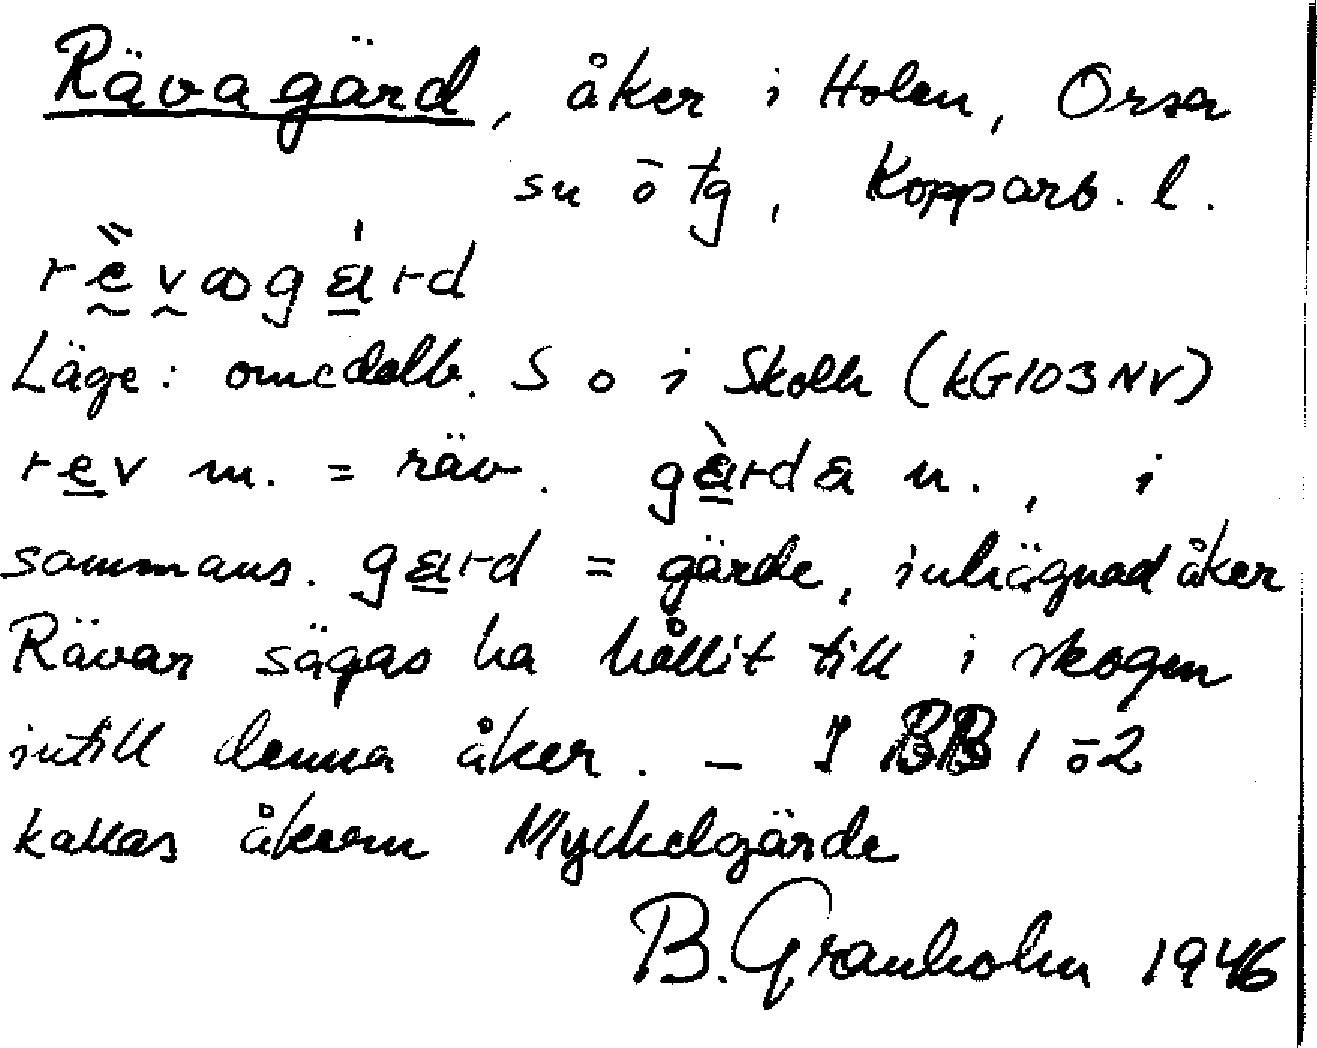 Rävagärd, åker i Holen, Orsa
sn o tg, Kopparb. l.
Läge: omedelb. S o i Skolh (kG103NV)
rev m. = räv. gärda n., i
sammans. gärd = gärde, inhägnad åker
Rävar sägas ha hållit till i skogen
intill denna åker. – I BB 1 o 2
kallas åkern Myckelgärde
B. Granholm 1946